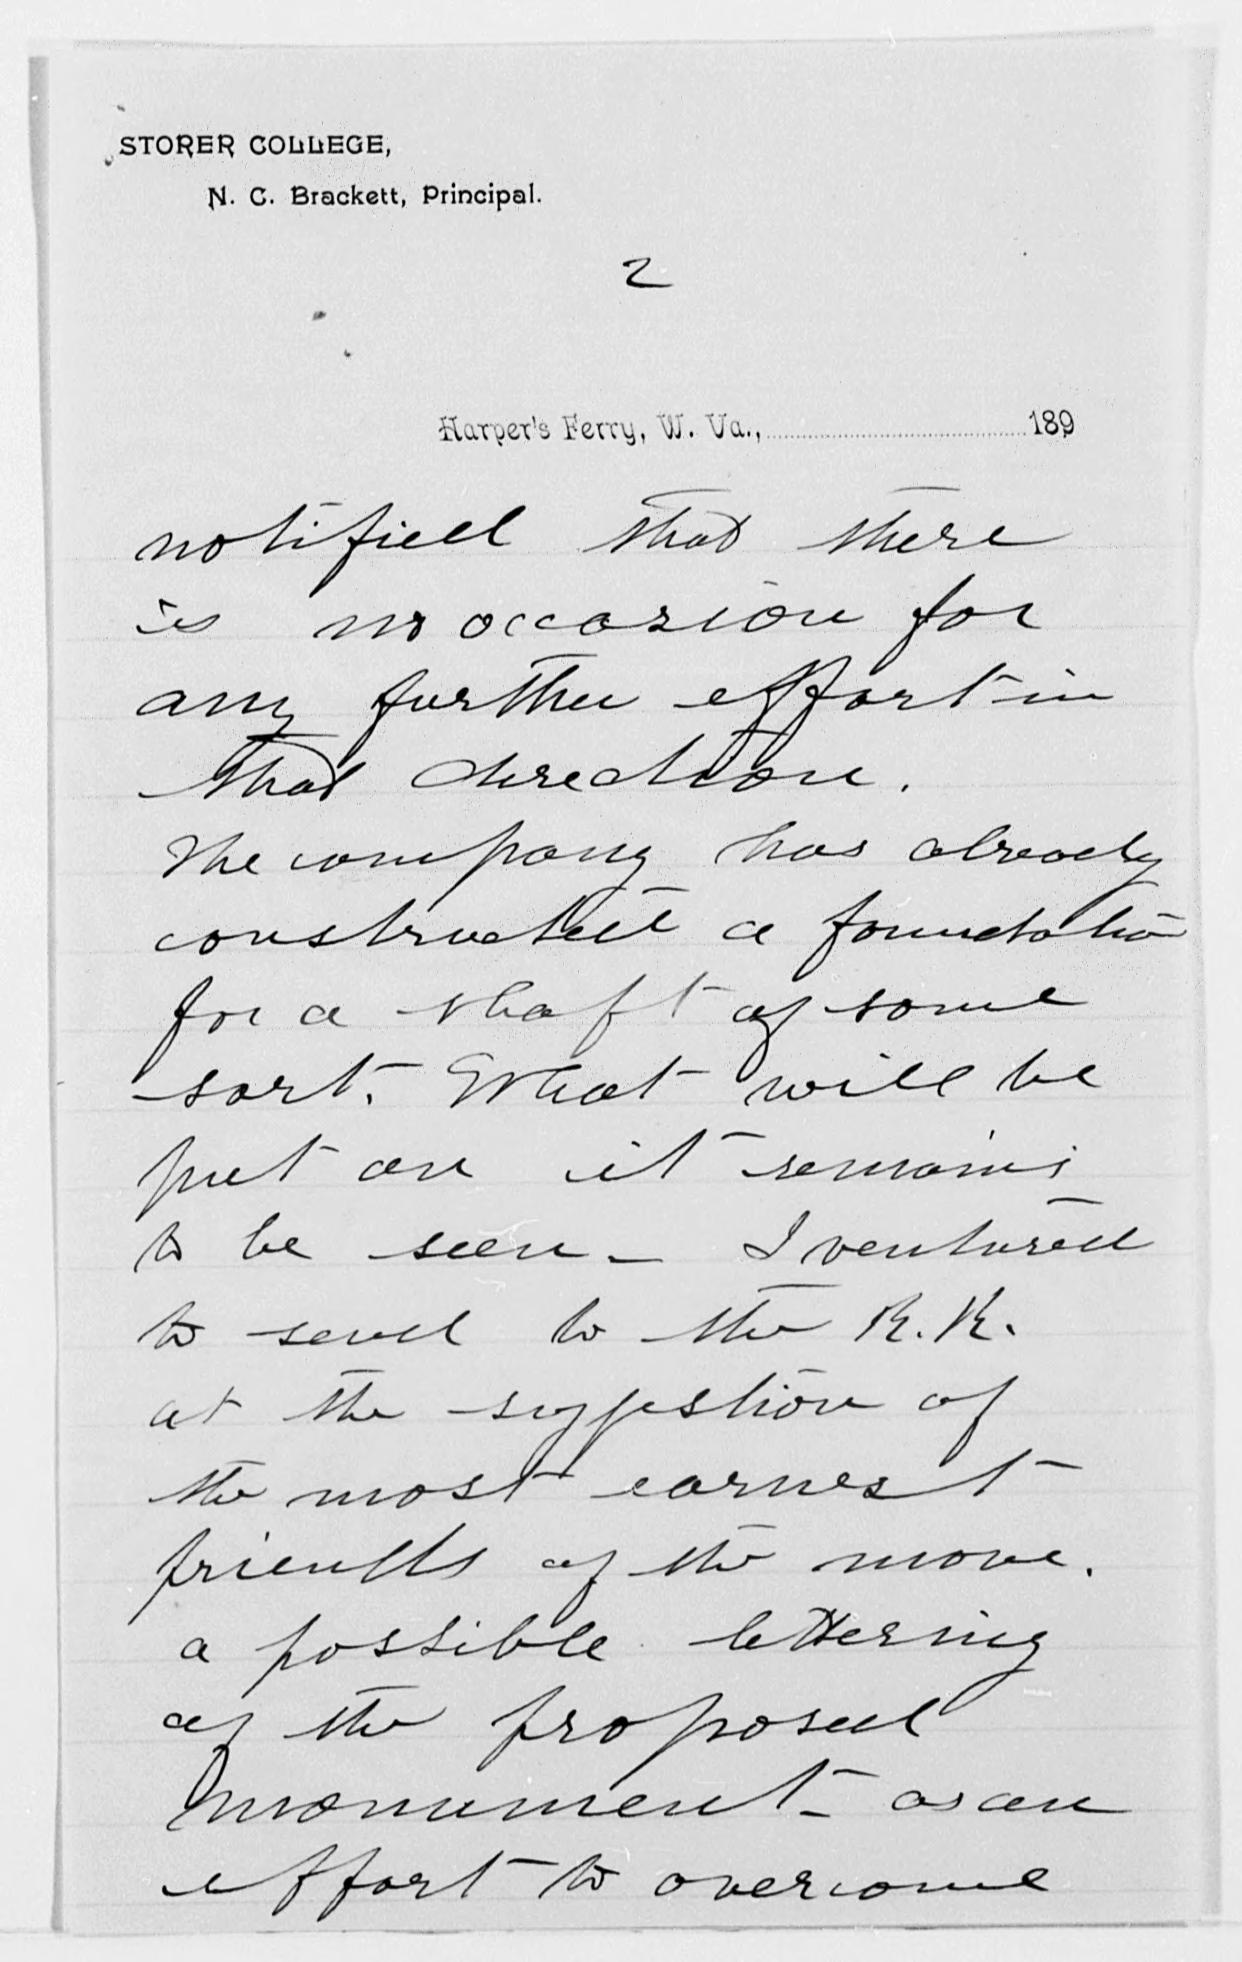 STORER COLLEGE,
N. C. Brackett, Principal.
2
Harper's Ferry, W. Va., 189
notified that there
is no occasion for
any further effort in
that direction.
The company has already
constructed a foundation
for a shaft of some
sort. What will be
put on it remains
to be seen - I ventured
to send to the R.R.
at the suggestion of
the most earnest
friends of the move.
a possible lettering
of the proposed
monument - as an
effort to overcome